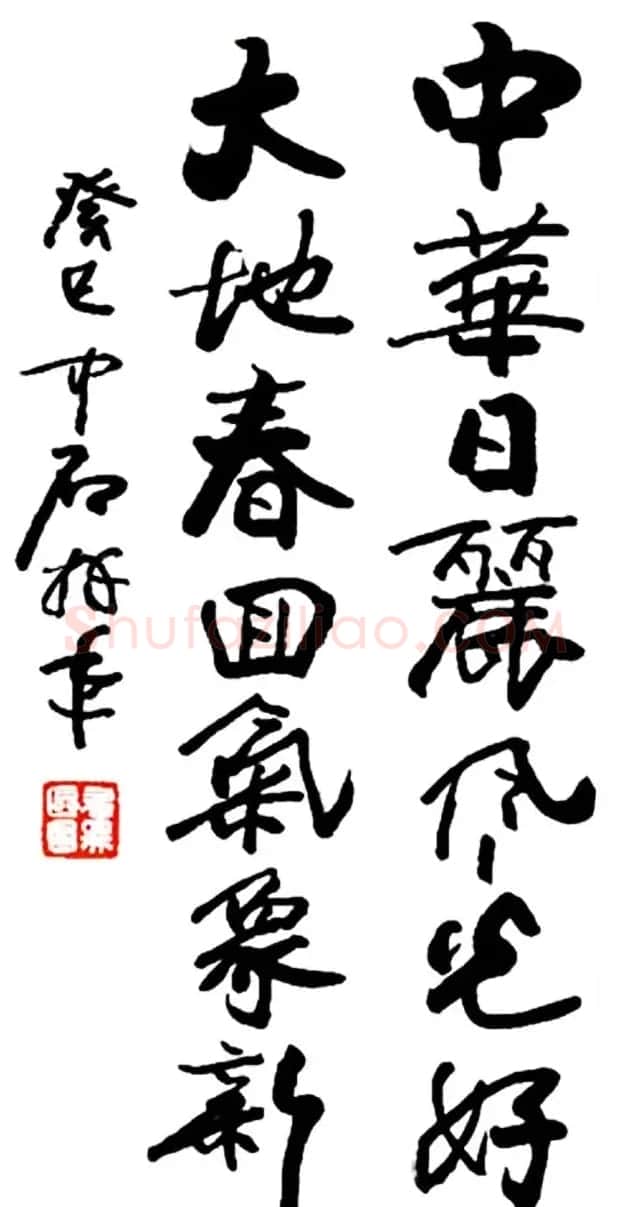 中華日麗风光好
大地春回氣象新
癸巳中石拜年
Shufaziliao.COM